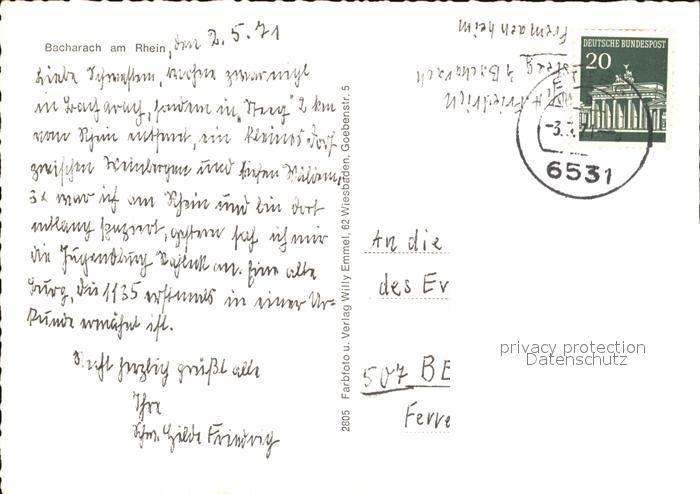 Bacharach am Rhein, den 2.5.71
Liebe Schwestern, wohne zwar nicht
in Bacharach, sondern in "Steeg" 2 km
vom Rhein entfernt, ein kleines Dorf
zwischen Weinbergen und tiefen Wäldern.
3x war ich am Rhein und bin dort
entlang spaziert, gestern sah ich mir
die Jugendburg Stahleck an. Eine alte
Burg, die 1135 erstmals in einer Ur-
kunde erwähnt ist.
Recht herzlich grüßt alle
Ihre
Schw. Hilde Friedrich
2805 Farbfoto u. Verlag Willy Emmel, 62 Wiesbaden, Goebenstr. 5
H. Friedrich
Steeg b. Bacharach
DEUTSCHE BUNDESPOST
20
-3.
6531
An die
des Er
507 BE
Ferre
privacy protection
Datenschutz